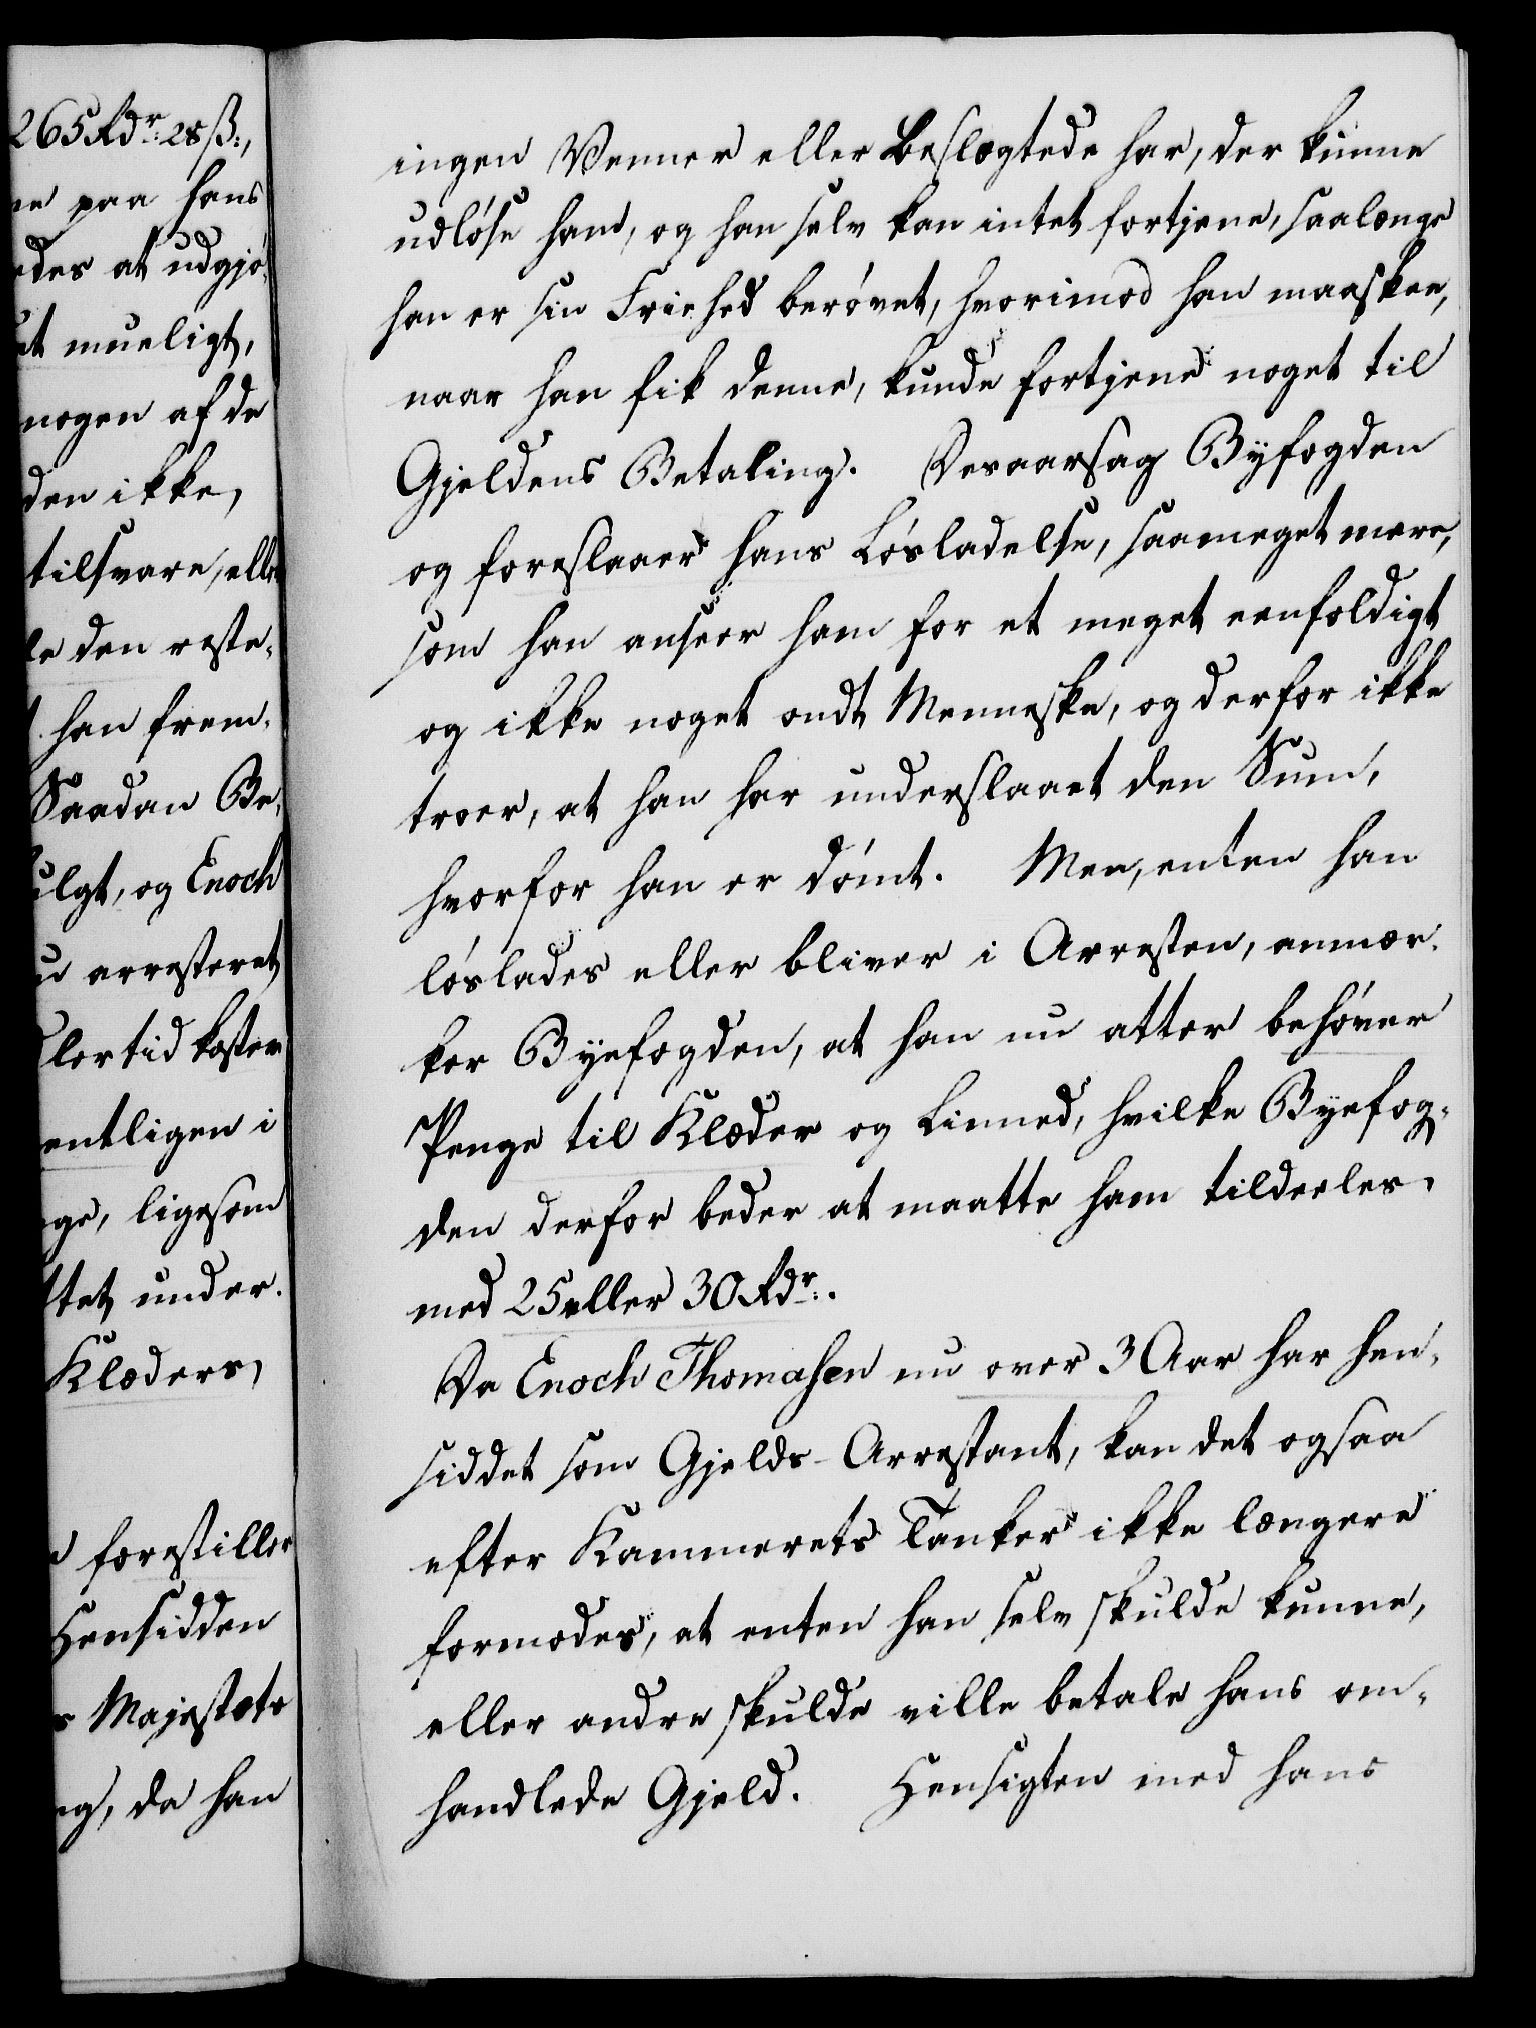 265 Rdr: 28 ß:,
ne paa hans
edes at udgjø-
et mueligt,
nogen af de
den ikke,
tilsvare, eller
le den reste-
han frem-
Saadan Be-
ulgt, og Enoch
u arresteret
lertid koster
entligen i
ge, ligesom
tet under-
Klæder,
e forestiller
Hensidden
s Majestæts
g, da han
ingen Venner eller Beslægtede har, der kunne
udløse ham, og han selv kan intet fortjene, saalænge
han er sin Friehed berøvet, hvorimod han maaskee,
naar han fik denne, kunde fortjene noget til
Gjeldens Betaling. Desaarsag Byfogden
og foreslaaer hans Løsladelse, saameget mere,
som han anseer ham for et meget eenfoldigt
og ikke noget ondt Menneske, og derfor ikke
troer, at han har underslaaet den Sum,
hvorfor han er dømt. Men, enten han
løslades eller bliver i Arresten, anmær-
ker Byefogden, at han nu atter behøver
Penge til Klæder og Linned, hvilke Byefog-
den derfor beder at maatte ham tildeeles,
med 25 eller 30 Rdr:.
Da Enoch Thomasen nu over 3 Aar har hen-
siddet som Gjelds-Arrestant, kan det ogsaa
efter Kammerets Tanker ikke længere
formodes, at enten han selv skulde kunne,
eller andre skulde ville betale hans om-
handlede Gjeld. Hensigten med hans